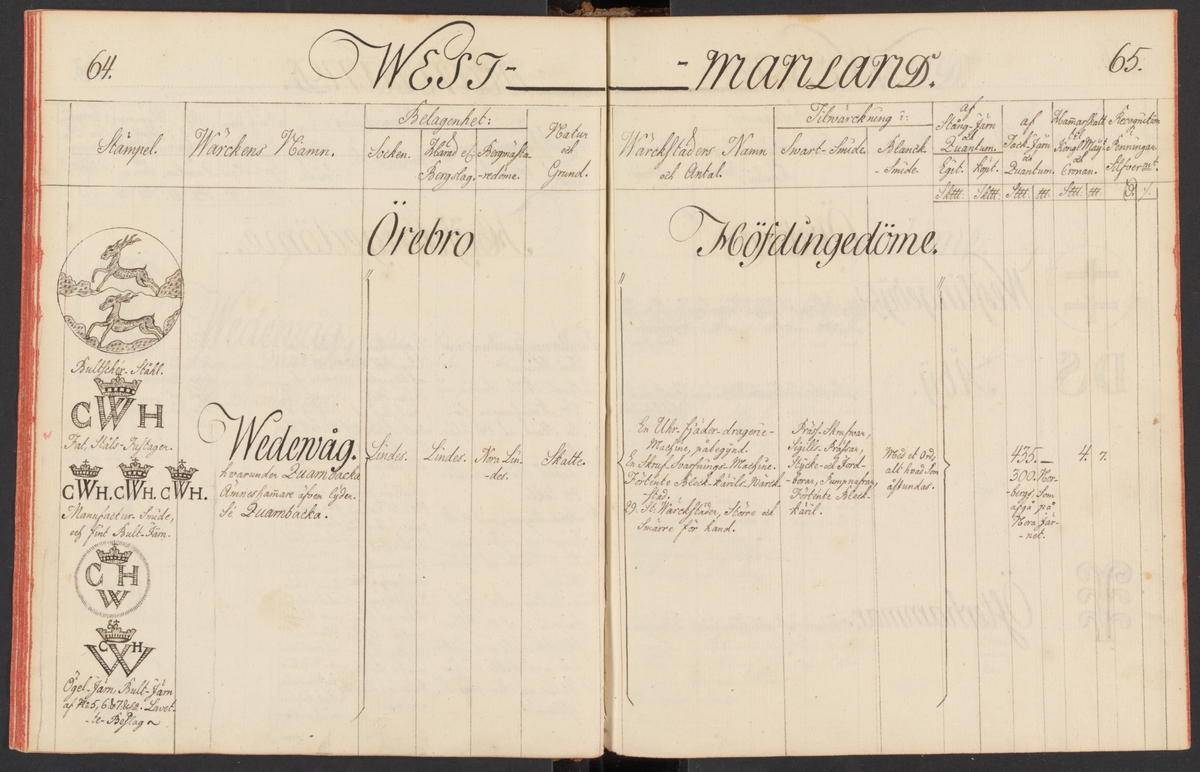 64.
WEST-
-MANLAND.
65.
Stämpel.
Wärckens Namn.
Belagenhet:
Socken.
Härad och
Bergslag
Bergmästa
-redöme.
Natur
och
Grund.
Wärckstäders Namn
och Antal.
Tilwärckning i:
Swart-Smide.
Blanck
-Smide.
af
Stång-Järn
Quantum.
Eget.
Köpt.
af
Tack-Järn
Quantum.
Hamarskatt
Cronan.
Recognition
Penningar
Silfvermt.
Örebro
Höfdingedöme.
Bultscher-Ståhl.
CWH
Fat, Ståls-Fustager.
CWH. CWH. CWH.
Manufactur-Smide,
och fint Bult-Järn.
C H
W
C H
W
Ögel-Järn, Bult-Järn
Lavet-
-te-Beslag
Wedewåg.
hvarunder Quarnbacka
Ämneshamare äfven lyder.
Sé Quarnbacka.
Lindes.
Lindes.
Nora Lin-
-des.
Skatte.
En Uhr-fjäder-dragerie-
Machine, påbegynd.
En Skruf-Svarfnings-Machine.
Förtente Bleck-Kärils Wärck-
stad.
29. St. Wärckstäder, Större och
Smärre för hand.
Präss-Skrufvar,
Sigills-Präsar,
Stycke-och Jord-
-borar, Jumpnafrar,
Förtente Bleck-
käril.
Med et Ord,
alt hvad Som
åstundas.
435.—
300. Nor-
-bergs, Som
afgå på
Nora Jär-
-net.
4.
7.